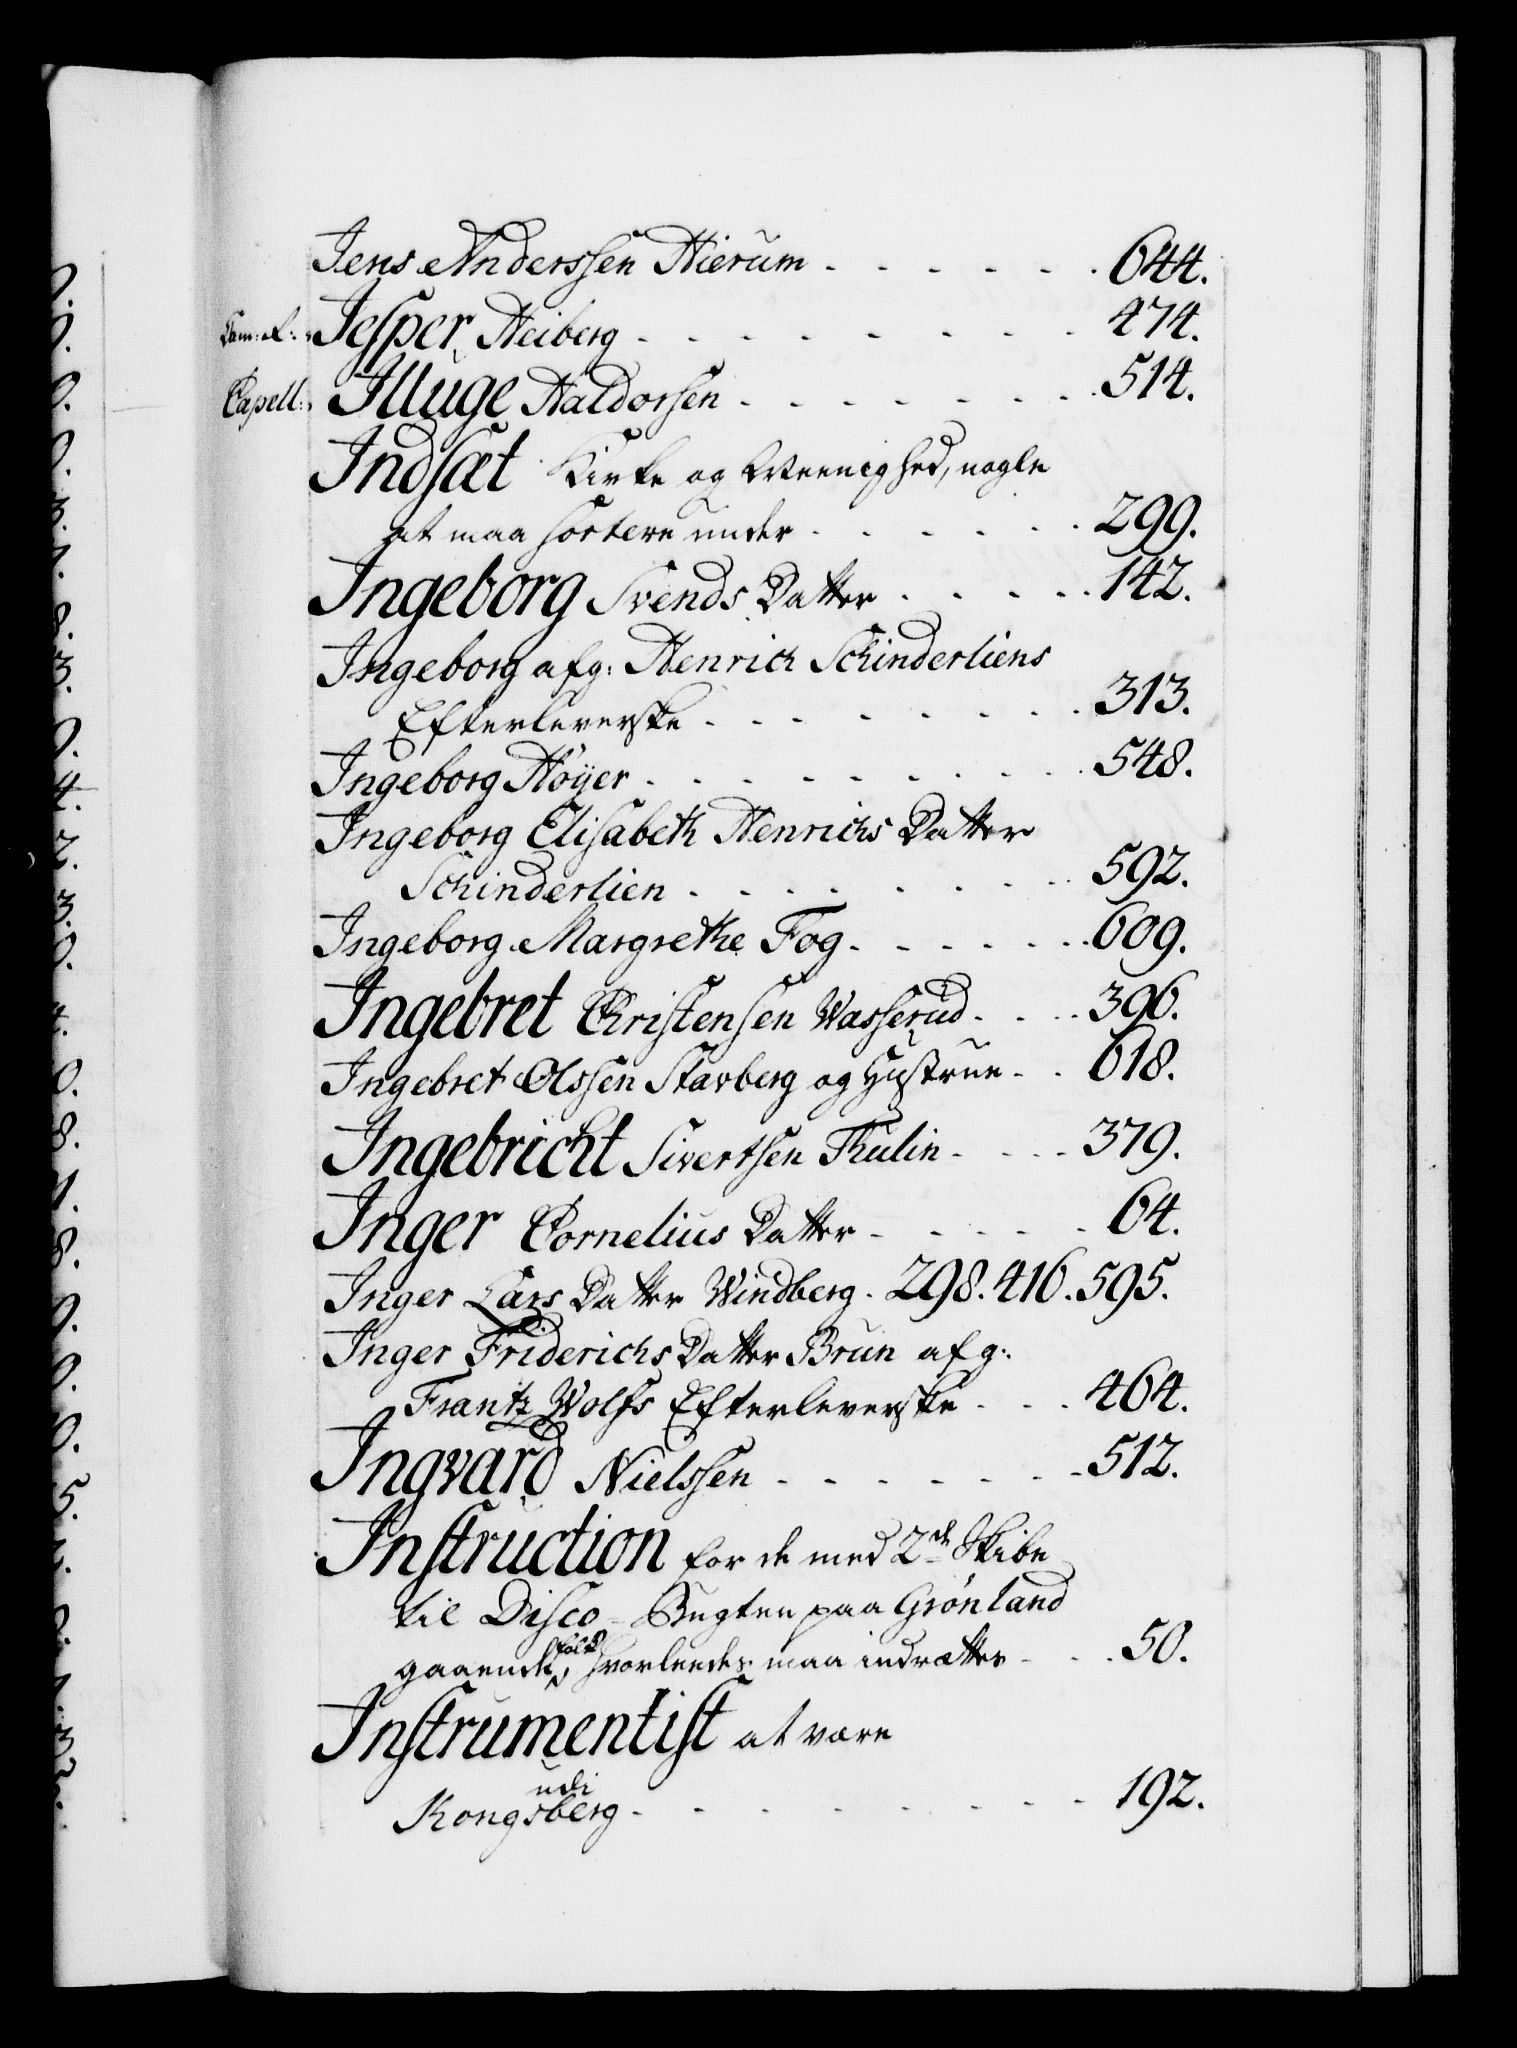 Jens Anderssen Hierum - - - - - - 644.
Jesper Heiberg - - - - - - - - - 474.
Capell: Illuge Haldorsen - - - - - - - 514.
Indsæt Kirke og Meenighed, nogle
at maa sortere under - - - - - - 299.
Ingeborg Svends Datter - - - - - 142.
Ingeborg afg: Henrich Schinderliens
Efterleverske - - - - - - - - - 313.
Ingeborg Höyer - - - - - - - - - 548.
Ingeborg Elisabeth Henrichs Datter
Schinderlien - - - - - - - - - 592.
Ingeborg Margrethe Fog - - - - - - 609.
Ingebret Christensen Wasserud - - - 396.
Ingebret Olssen Stavberg og Hustrue - - 618.
Ingebricht Sivertsen Thulin - - - - 379.
Inger Cornelius Datter - - - - - 64.
Inger Lars Datter Windberg. 298. 416. 595.
Inger Friderichs Datter Brun afg:
Frantz Wolfs Efterleverske - - - 464.
Ingvard Nielssen - - - - - - - 512.
Instruction for de med 2de Skibe
til Disco-Bugten paa Grönland
gaaende folk, hvorledes maa indrættes - - 50.
Instrumentist at være
udi
Kongsberg - - - - - - - - - 192.